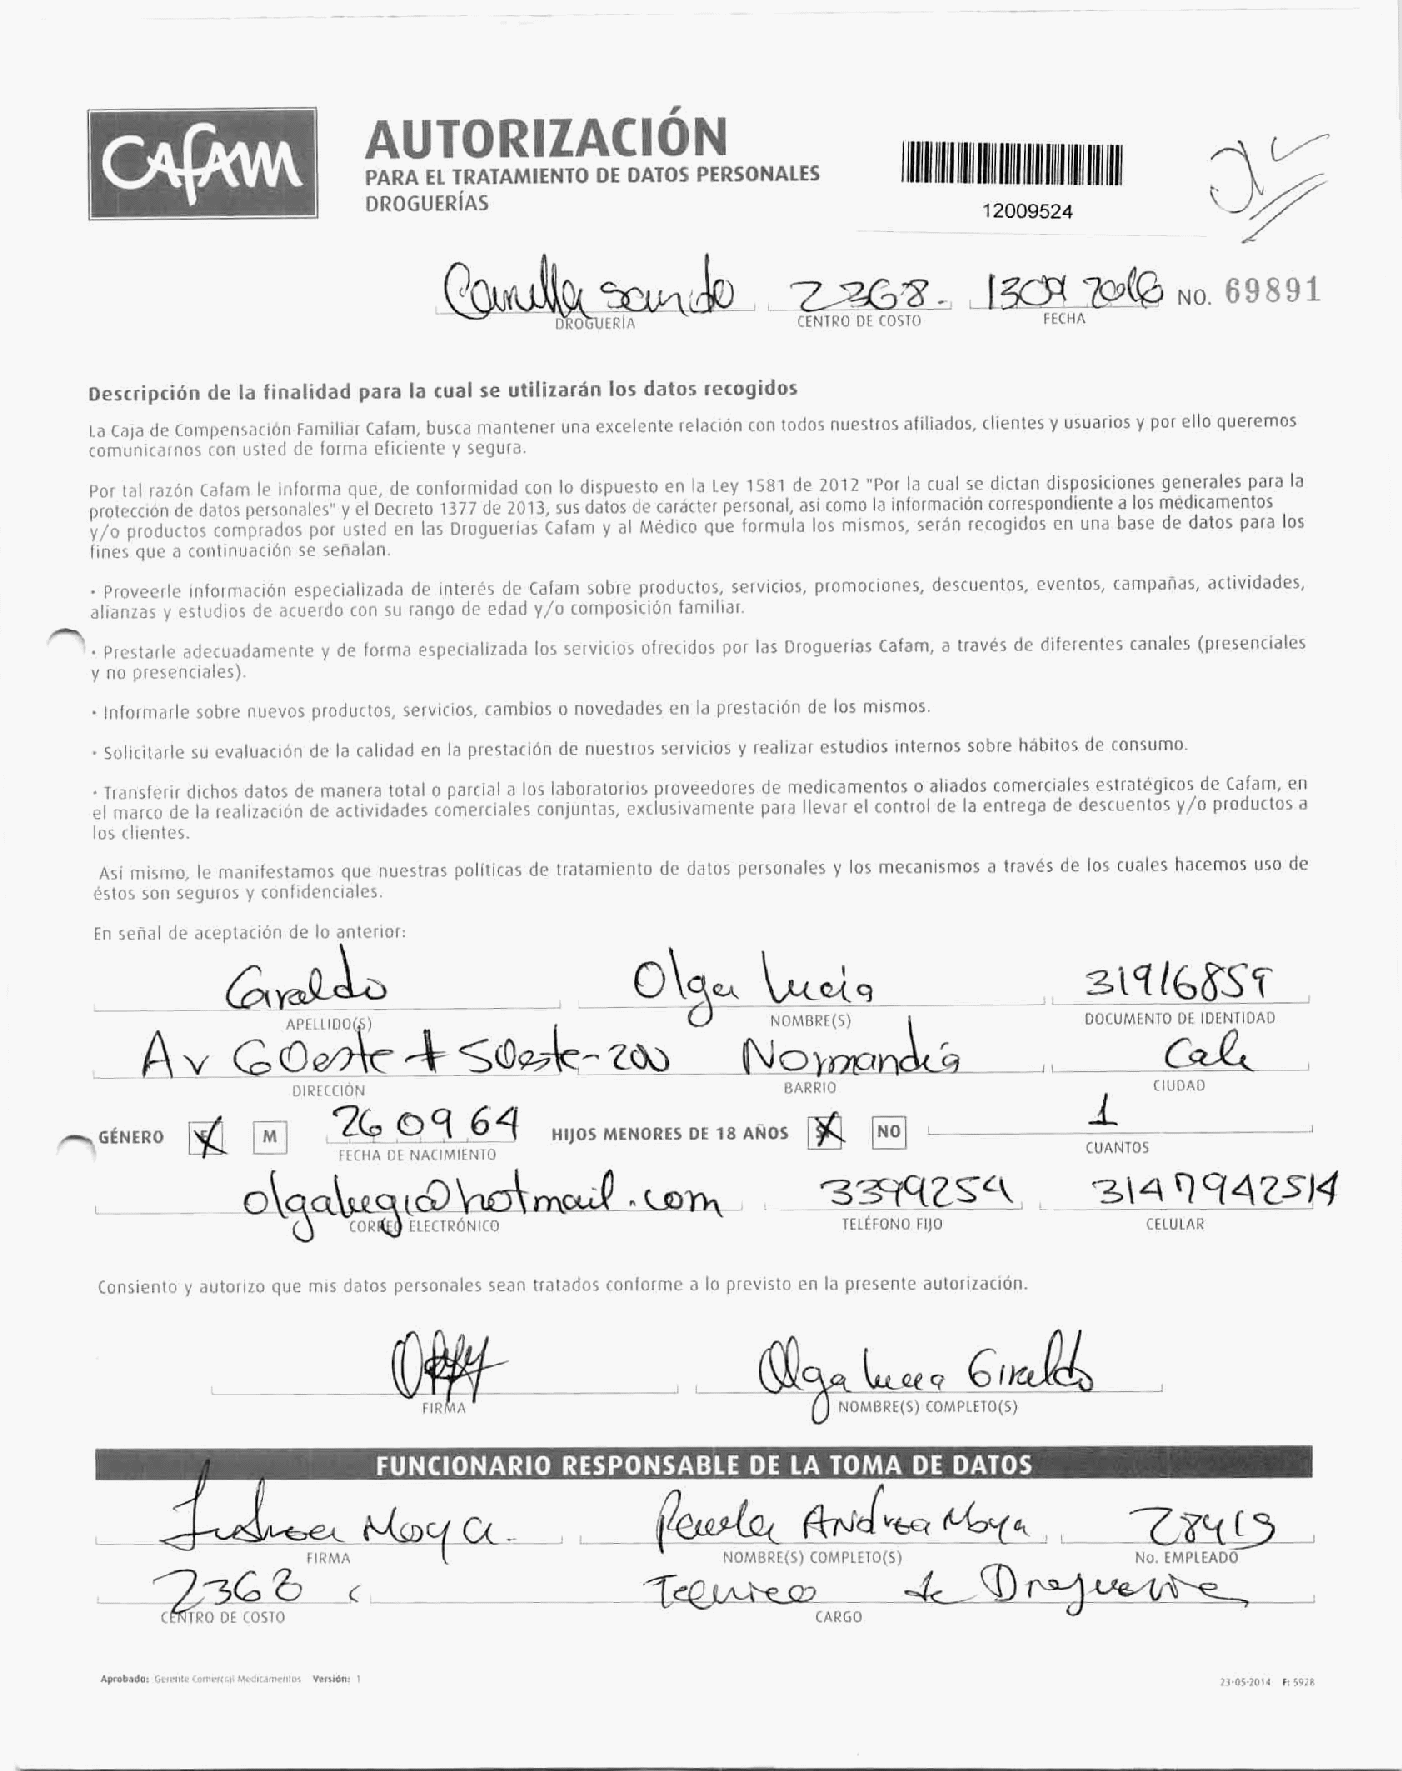 CAFAM
AUTORIZACIÓN
PARA EL TRATAMIENTO DE DATOS PERSONALES
DROGUERÍAS
12009524
2368. 1309 2016 NO. 69891
DROGUERÍA CENTRO DE COSTO FECHA
Descripción de la finalidad para la cual se utilizarán los datos recogidos
La Caja de Compensación Familiar Cafam, busca mantener una excelente relación con todos nuestros afiliados, clientes y usuarios y por ello queremos
comunicarnos con usted de forma eficiente y segura.
Por tal razón Cafam le informa que, de conformidad con lo dispuesto en la Ley 1581 de 2012 "Por la cual se dictan disposiciones generales para la
protección de datos personales" y el Decreto 1377 de 2013, sus datos de carácter personal, así como la información correspondiente a los medicamentos
y/o productos comprados por usted en las Droguerías Cafam y al Médico que formula los mismos, serán recogidos en una base de datos para los
fines que a continuación se señalan.
· Proveerle información especializada de interés de Cafam sobre productos, servicios, promociones, descuentos, eventos, campañas, actividades,
alianzas y estudios de acuerdo con su rango de edad y/o composición familiar.
· Prestarle adecuadamente y de forma especializada los servicios ofrecidos por las Droguerías Cafam, a través de diferentes canales (presenciales
y no presenciales).
· Informarle sobre nuevos productos, servicios, cambios o novedades en la prestación de los mismos.
· Solicitarle su evaluación de la calidad en la prestación de nuestros servicios y realizar estudios internos sobre hábitos de consumo.
· Transferir dichos datos de manera total o parcial a los laboratorios proveedores de medicamentos o aliados comerciales estratégicos de Cafam, en
el marco de la realización de actividades comerciales conjuntas, exclusivamente para llevar el control de la entrega de descuentos y/o productos a
los clientes.
Así mismo, le manifestamos que nuestras políticas de tratamiento de datos personales y los mecanismos a través de los cuales hacemos uso de
éstos son seguros y confidenciales.
En señal de aceptación de lo anterior:
Giraldo Olga Lucia 31916859
APELLIDO(S) NOMBRE(S) DOCUMENTO DE IDENTIDAD
Av 6Oeste # 5Oeste-200 Normandía Cali
DIRECCIÓN BARRIO CIUDAD
GÉNERO M 26 09 64 HIJOS MENORES DE 18 AÑOS NO 1
FECHA DE NACIMIENTO CUANTOS
olgalugi@hotmail.com 3399254 3147942514
CORREO ELECTRÓNICO TELÉFONO FIJO CELULAR
Consiento y autorizo que mis datos personales sean tratados conforme a lo previsto en la presente autorización.
Olga Lucia Giraldo
FIRMA NOMBRE(S) COMPLETO(S)
FUNCIONARIO RESPONSABLE DE LA TOMA DE DATOS
Andrea Moya Paula Andrea Moya 28419
FIRMA NOMBRE(S) COMPLETO(S) No. EMPLEADO
2368 Tecnico de Drogueria
CENTRO DE COSTO CARGO
Aprobado: Gerente Comercial Medicamentos Versión: 1 23-05-2014 F: 5928